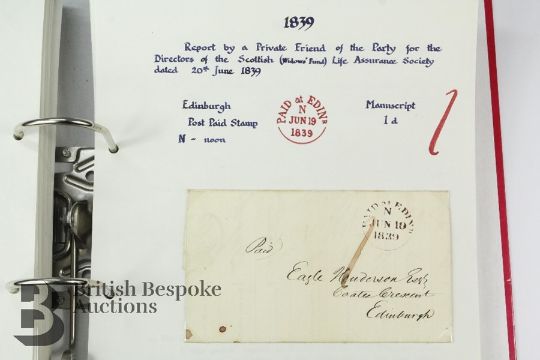 1839
Report by a Private Friend of the Party for the
Directors of the Scottish (Widows' Fund) Life Assurance Society
dated 20th June 1839
Edinburgh
Post Paid Stamp
N - noon
PAID at EDINR
N
JUN 19
1839
Manuscript
1 d
PAID at EDINR
N
JUN 19
1839
Paid
Eagle Henderson Esqr
Coates Crescent
Edinburgh
B
British Bespoke
Auctions